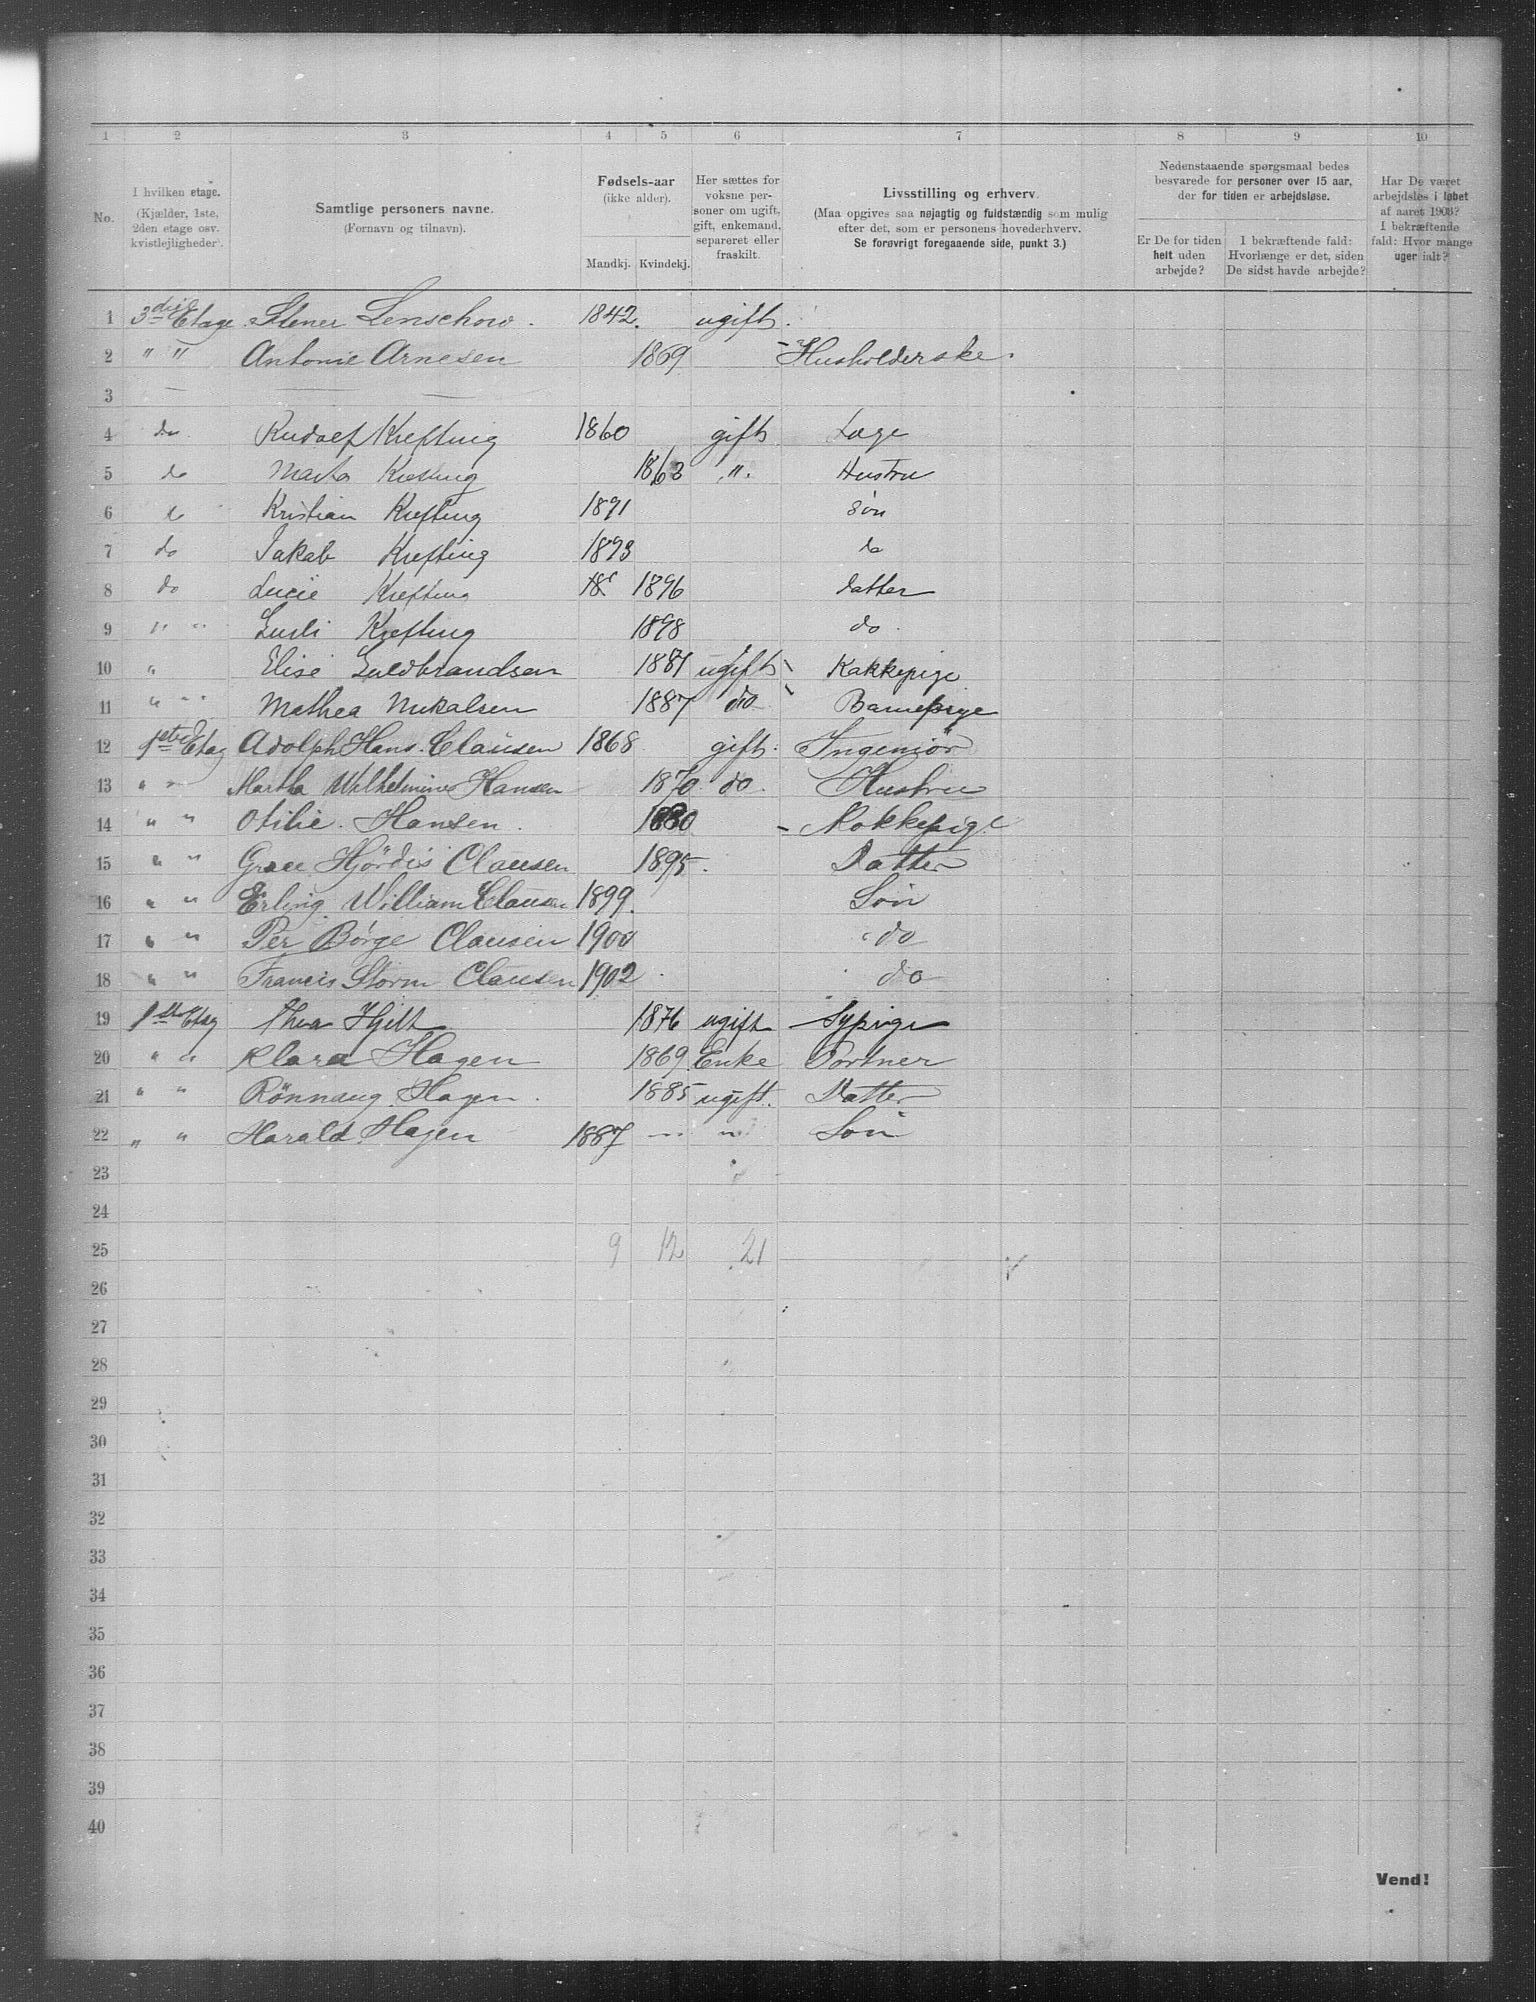 1 2 3 4 5 6 7 8 9 10
No. | I hvilken etage. (Kjælder, 1ste, 2den etage osv. kvistlejligheder). | Samtlige personers navne. (Fornavn og tilnavn). | Fødsels-aar (ikke alder). Mandkj. Kvindekj. | Her sættes for voksne personer om ugift, gift, enkemand, separeret eller fraskilt. | Livsstilling og erhverv. (Maa opgives saa nøjagtig og fuldstændig som mulig efter det, som er personens hovederhverv. Se forøvrigt foregaaende side, punkt 3.) | Nedenstaaende spørgsmaal bedes besvarede for personer over 15 aar, der for tiden er arbejdsløse. Er De for tiden helt uden arbejde? | I bekræftende fald: Hvorlænge er det, siden De sidst havde arbejde? | Har De været arbejdsløs i løbet af aaret 1903? I bekræftende fald: Hvor mange uger ialt?
1 3die Etage Stener Lenschow. 1842. ugift.
2 " " Antonie Arnesen 1869 - Husholderske.
3 —
4 do Rudolf Krefting 1860 gift Læge
5 do Marta Krefting 1863 " Hustru
6 do Kristian Krefting 1891 Søn
7 do Jakob Krefting 1893 do
8 do Lucie Krefting 18 1896 Datter
9 " " Krefting 1898 do
10 " Elise Guldbrandsen 1881 ugift Kokkepige
11 " " Mathea Mikalsen 1887 do Barnepige
12 1ste Etag Adolph Hans Clausen 1868 gift. Ingeniör
13 " " Martha Wilhelmine Hansen 1870 do. Hustru
14 " " Otilie. Hansen. 1880 - Kokkepige
15 " " Grace Hjördis Clausen 1895. Datter
16 " " Erling William Clausen 1899. Sön
17 " " Per Börge Clausen 1900 do
18 " " Francis Storm Clausen 1902 do
19 1ste Etag Thea Hjelt 1876 ugift Sypige
20 " " Klara Hagen 1869. Enke Portner
21 " " Rönnaug Hagen. 1885 ugift. Datter
22 " " Harald Hagen 1887 — " — Sön
23
24
25 9 12 21
26
27
28
29
30
31
32
33
34
35
36
37
38
39
40
Vend!